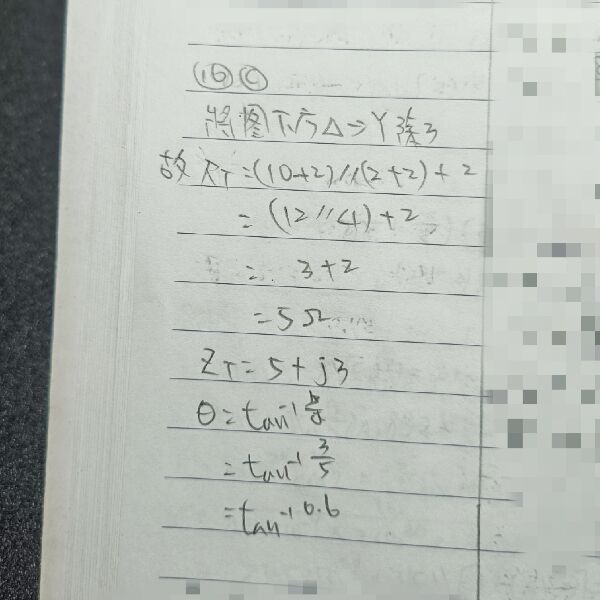 ⑯ Ⓒ
將圖下方△⇒Y
故 RT=(10+2)//(2+2)+2
=(12//4)+2
= 3+2
=5Ω
ZT=5+j3
θ=tan⁻¹
=tan⁻¹ 3/5
=tan⁻¹ 0.6